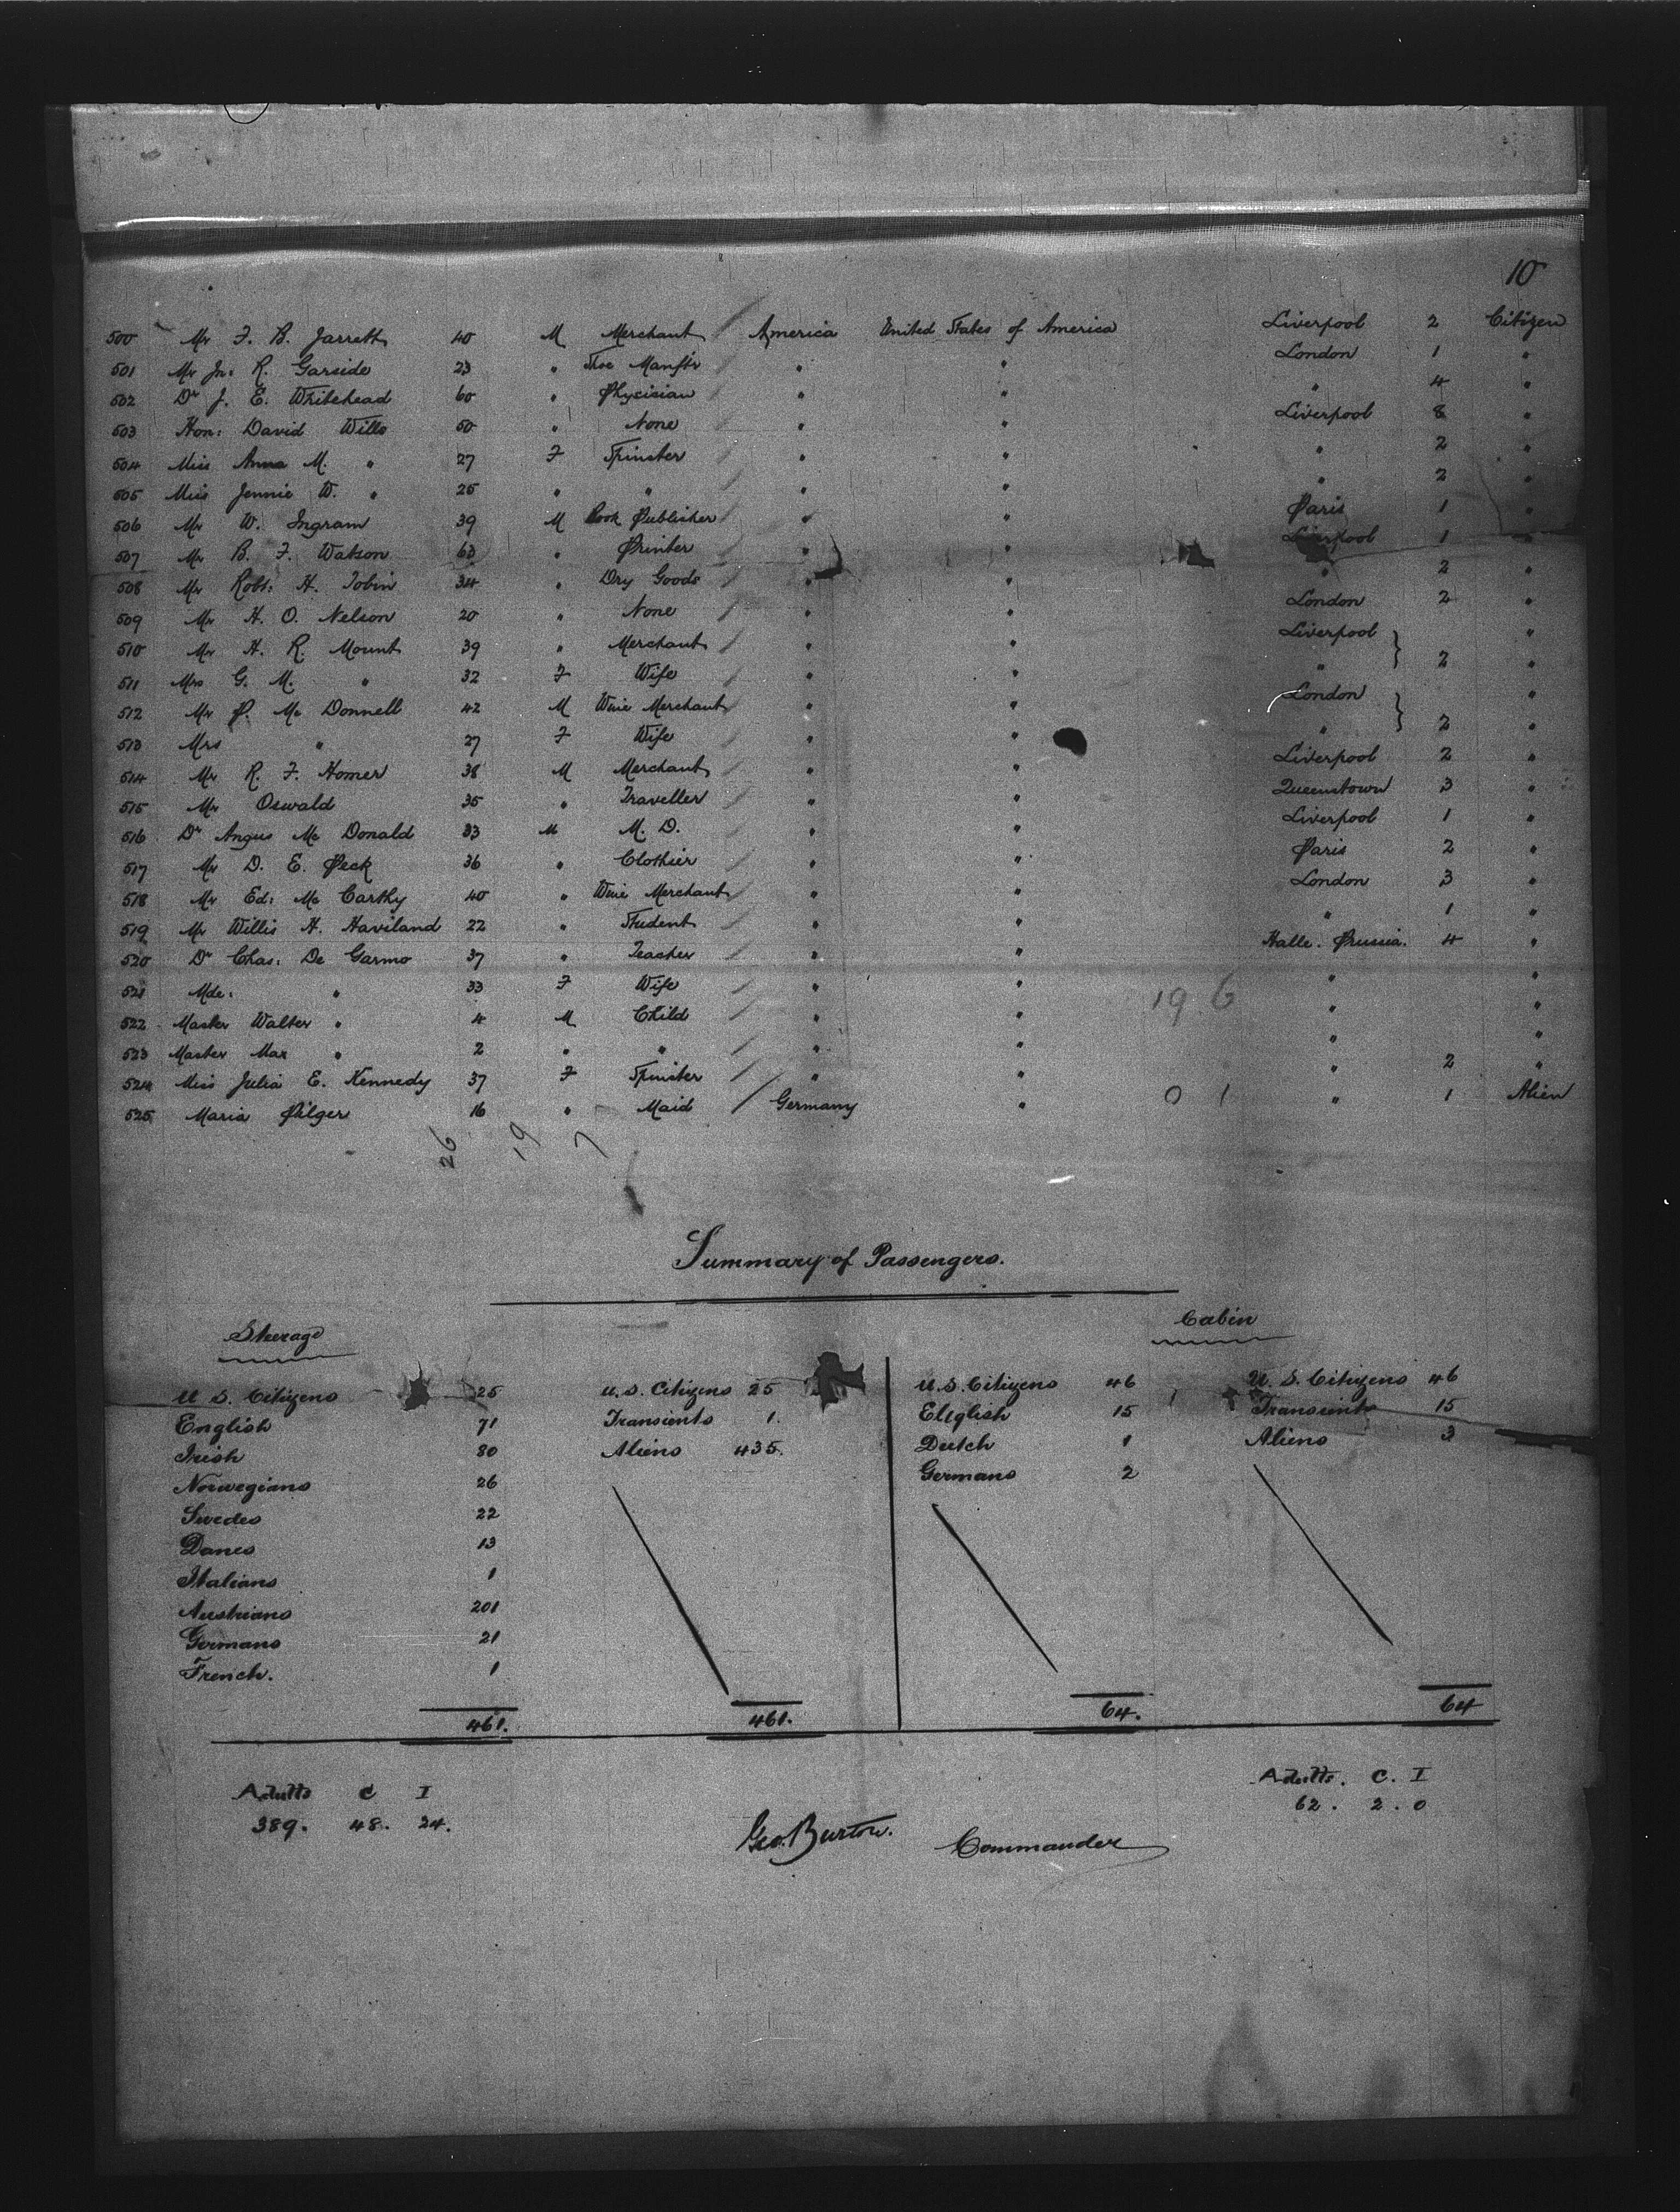 10
500 Mr F. B. Jarrett 40 M Merchant America United States of America Liverpool 2 Citizen
501 Mr Jn: R. Garside 23 " Shoe Manftr " " London 1 "
502 Dr J. E. Whitehead 60 " Physician " " " 4 "
503 Hon: David Wills 50 " None " " Liverpool 8 "
504 Miss Anna M. " 27 F Spinster " " " 2 "
505 Miss Jennie W. " 25 " " " " " 2 "
506 Mr W. Ingram 39 M Book Publisher " " Paris 1 "
507 Mr B. F. Watson 63 " Printer " " Liverpool 1 "
508 Mr Robt: H. Tobin 34 " Dry Goods " " " 2 "
509 Mr H. O. Nelson 20 " None " " London 2 "
510 Mr H. R. Mount 39 " Merchant " " Liverpool "
511 Mrs G. M. " 32 F Wife " " " } 2 "
512 Mr P. Mc Donnell 42 M Wine Merchant " " London "
513 Mrs " 27 F Wife " " " } 2 "
514 Mr R. F. Homer 38 M Merchant " " Liverpool 2 "
515 Mr Oswald 35 " Traveller " " Queenstown 3 "
516 Dr Angus Mc Donald 33 M M. D. " " Liverpool 1 "
517 Mr D. E. Peck 36 " Clothier " " Paris 2 "
518 Mr Ed: Mc Carthy 40 " Wine Merchant " " London 3 "
519 Mr Willis H. Haviland 22 " Student " " " 1 "
520 Dr Chas: De Garmo 37 " Teacher " " Halle. Prussia. 4 "
521 Mde: " 33 F Wife " " " "
522 Master Walter " 4 M Child " " 19 6 " "
523 Master Max " 2 " " " " " "
524 Miss Julia E. Kennedy 37 F Spinster " " " 2 "
525 Maria Pilger 16 " Maid Germany " 0 1 " 1 Alien
26 19 7
Summary of Passengers.
Steerage Cabin
U S. Citizens 25 U.S. Citizens 25 U.S. Citizens 46 U.S. Citizens 46
English 71 Transients 1. English 15 Transients 15
Irish 80 Aliens 435. Dutch 1 Aliens 3
Norwegians 26 Germans 2
Swedes 22
Danes 13
Italians 1
Austrians 201
Germans 21
French. 1
461. 461. 64. 64
Adults C I Adults. C. I
389. 48. 24. 62. 2. 0
Geo. Burton. Commander